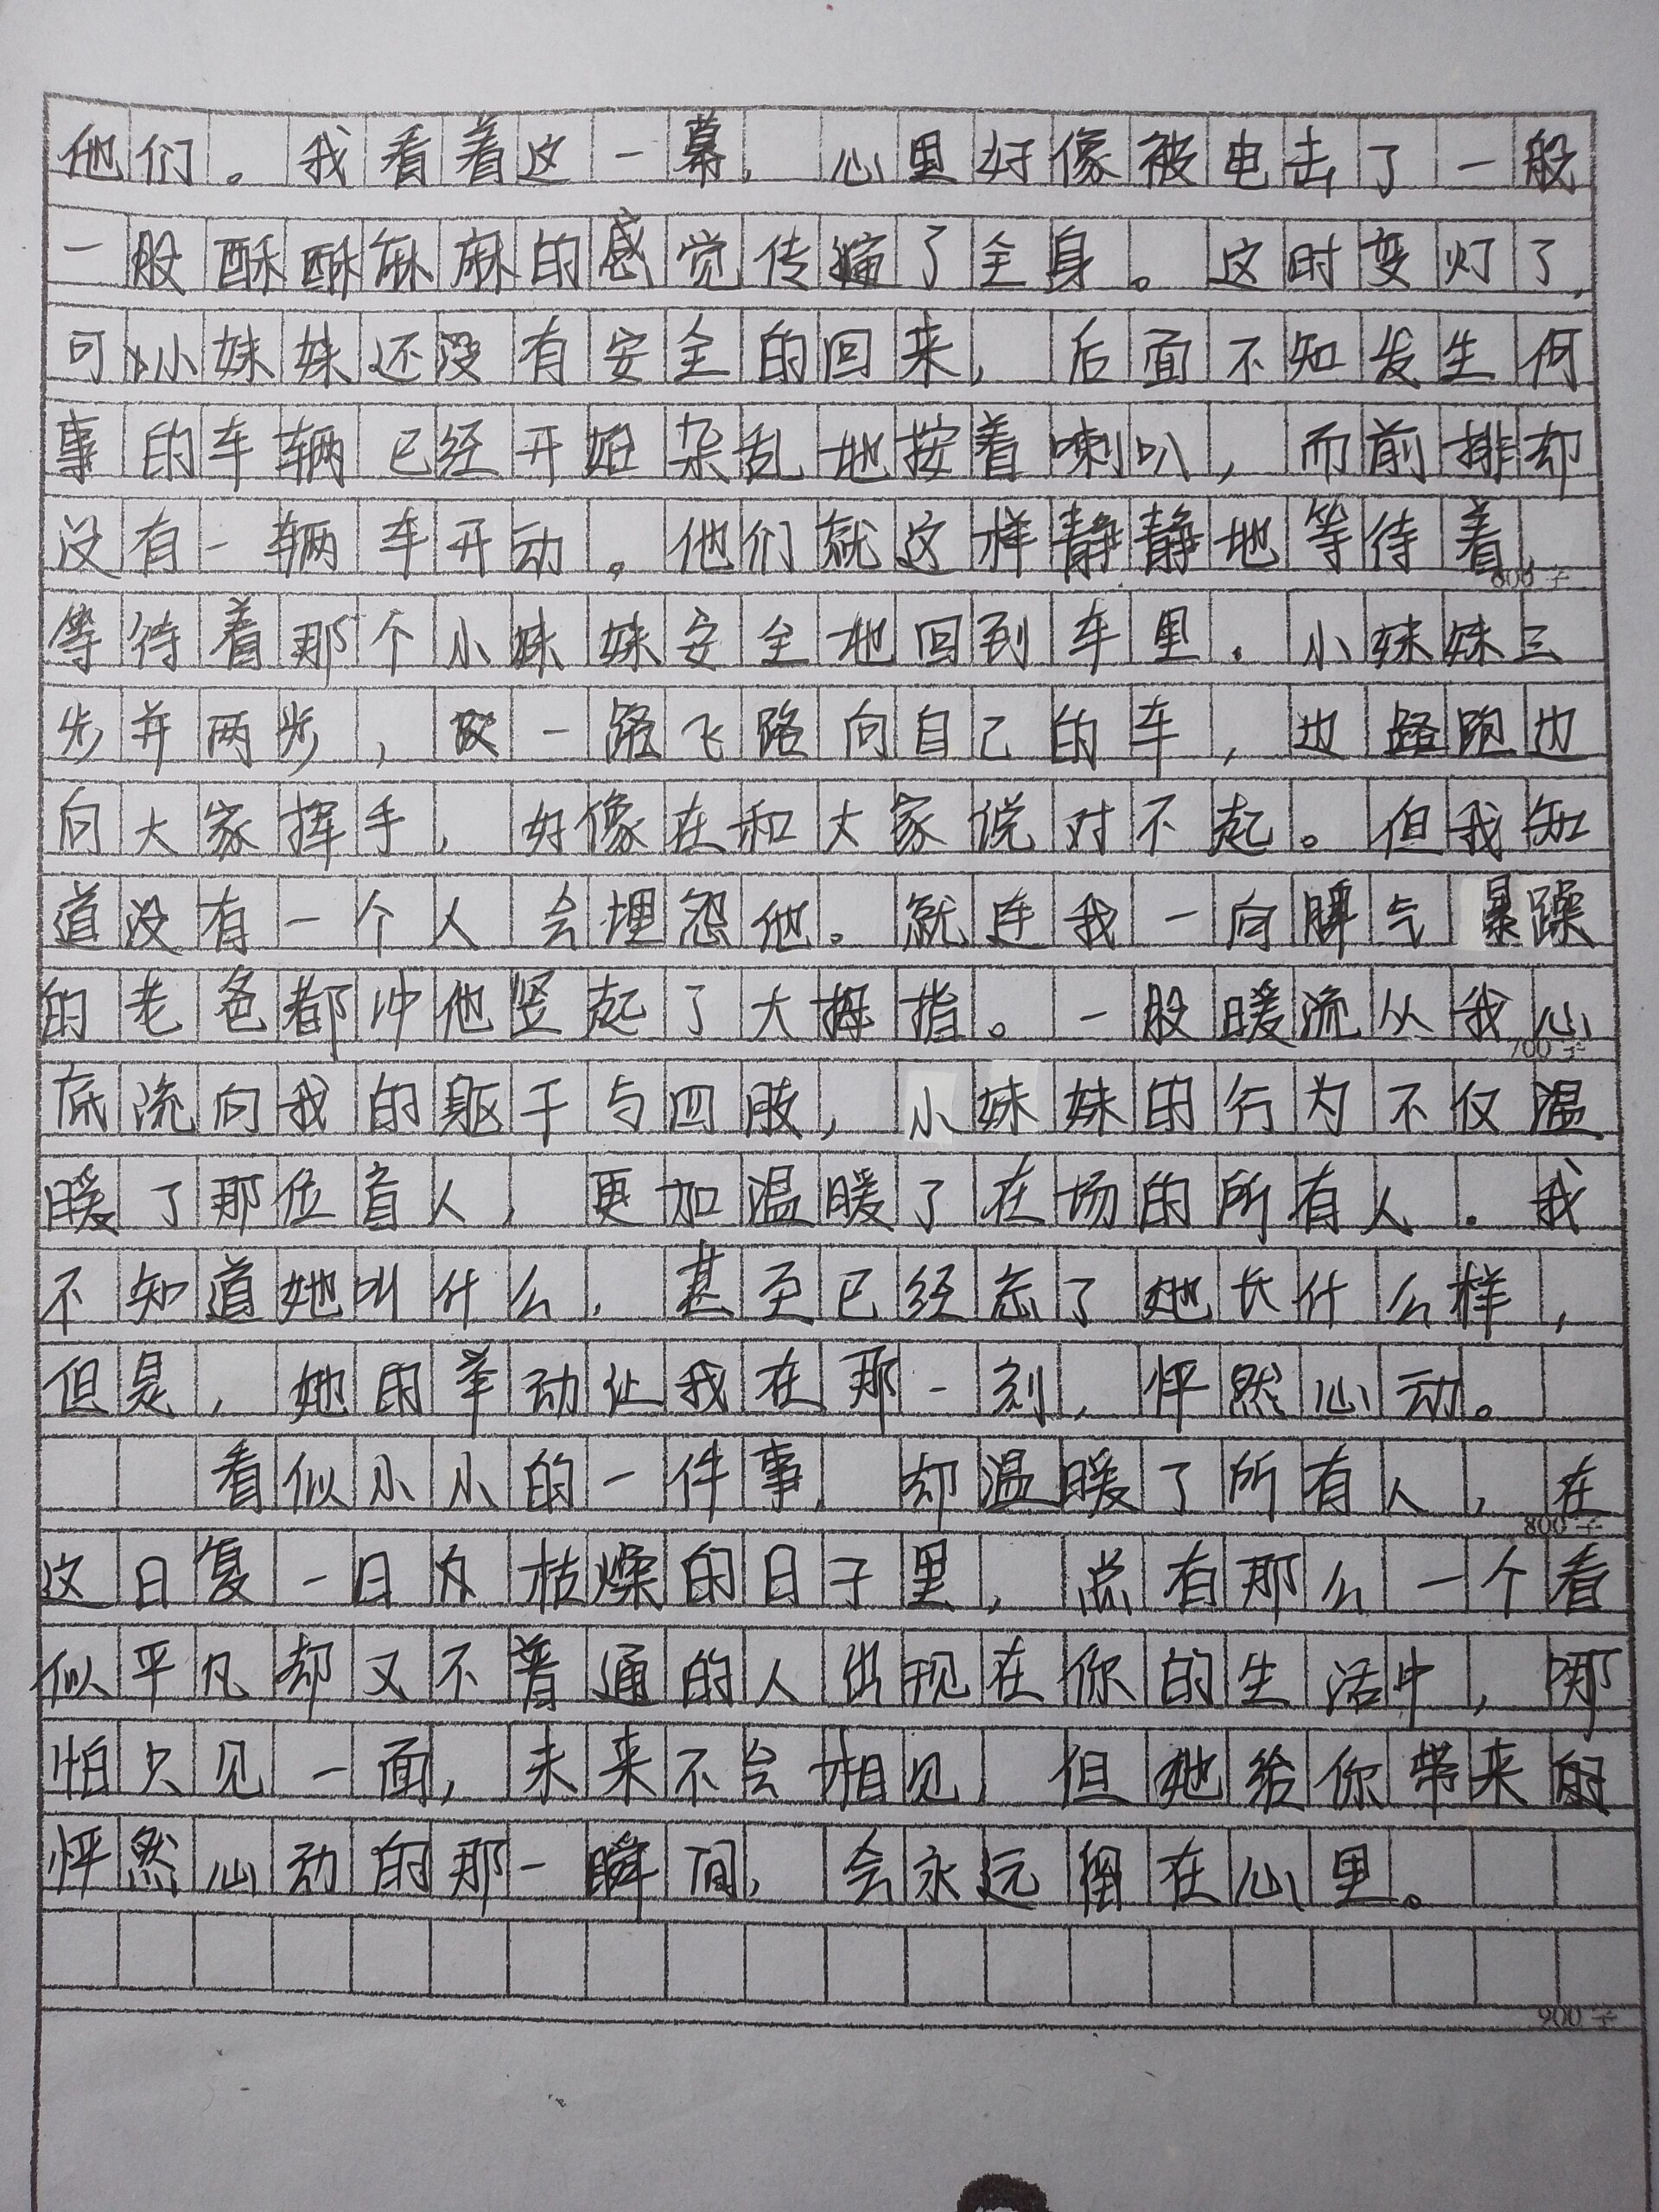 他们。我看着这一幕，心里好像被电击了一般
一股酥酥麻麻的感觉传遍了全身。这时变灯了，
可小妹妹还没有安全的回来，后面不知发生何
事的车辆已经开始杂乱地按着喇叭，而前排却
没有一辆车开动。他们就这样静静地等待着，
600字
等待着那个小妹妹安全地回到车里。小妹妹三
步并两步，又一路飞路向自己的车，边跑边
向大家挥手，好像在和大家说对不起。但我知
道没有一个人会埋怨他。就连我一向脾气暴躁
的老爸都冲他竖起了大拇指。一股暖流从我心
700字
底流向我的躯干与四肢，小妹妹的行为不仅温
暖了那位盲人，更加温暖了在场的所有人。我
不知道她叫什么，甚至已经忘了她长什么样，
但是，她的举动让我在那一刻，怦然心动。
看似小小的一件事，却温暖了所有人，在
800字
这日复一日为枯燥的日子里，总有那么一个看
似平凡却又不普通的人出现在你的生活中，哪
怕只见一面，未来不会相见，但她给你带来的
怦然心动的那一瞬间，会永远留在心里。
900字